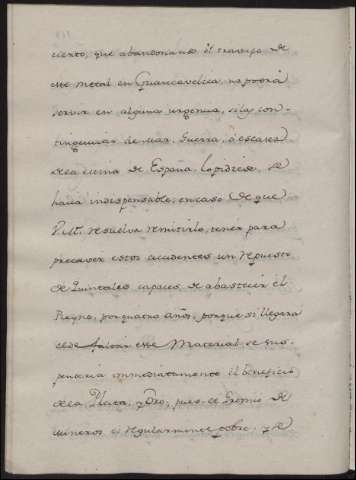 cierto, que abandonando el travajo de
este metal en Guancavelica, no podrá
servir en alguna urgencia, si la con-
tingencia de mar, Guerra, ó escases
de la mina de España, lo pidiese, se
haria indispensable, en caso de que
V.M. resuelva remitirlo, tener para
precaver estos accidentes un repuesto
de Quintales capaces de abastecer el
Reyno, por quatro años, porque si llegará
á faltar este Material se sus-
penderia inmediatamente el beneficio
de la Plata, y Oro, pues el Gremio de
mineros es regularmente pobre, y de